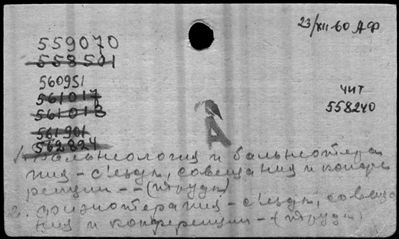 23/XII-60 АФ
559070
558501
560951
561017
561013
561901
562824
чит
558240
А
1. Бальнеология и бальнеотера
пия - съезды, совещания и конфе
ренции - (труды)
2. физиотерапия - съезды, совеща
ния и конференции - (труды)